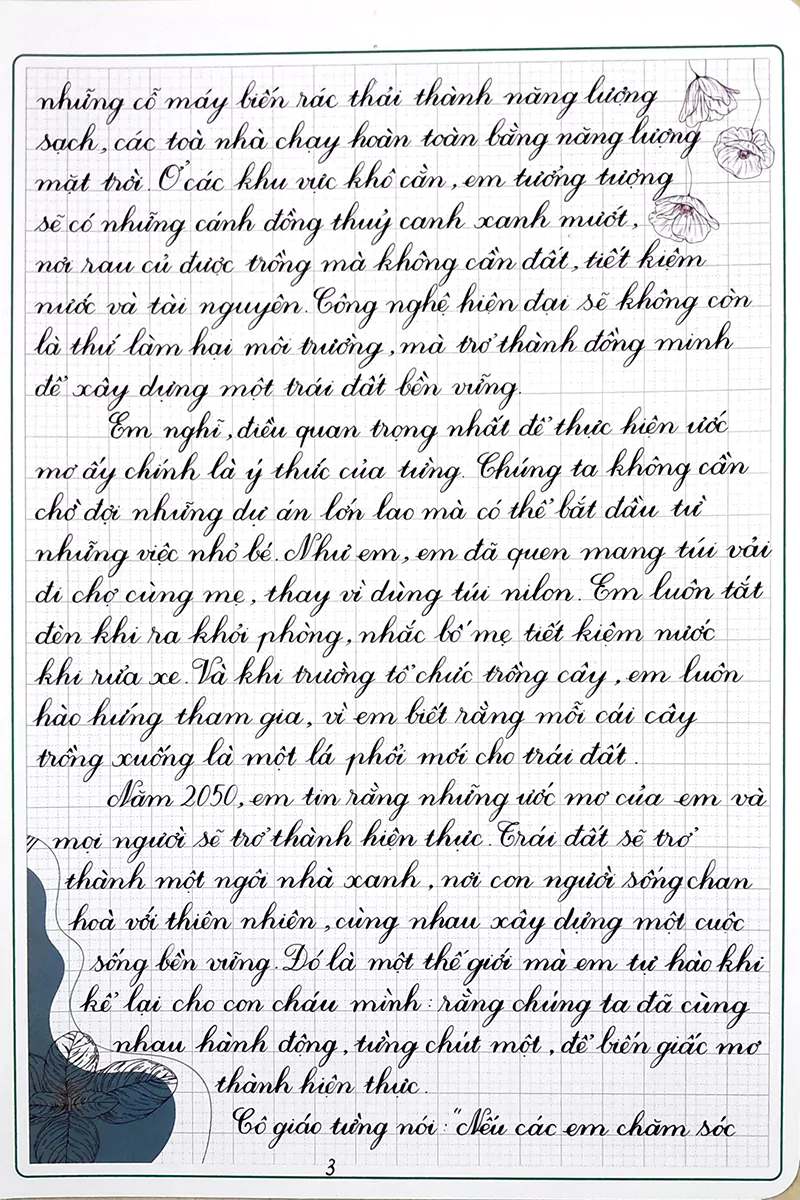 những cỗ máy biến rác thải thành năng lượng
sạch, các toà nhà chạy hoàn toàn bằng năng lượng
mặt trời. Ở các khu vực khô cằn, em tưởng tượng
sẽ có những cánh đồng thuỷ canh xanh mướt,
nơi rau củ được trồng mà không cần đất, tiết kiệm
nước và tài nguyên. Công nghệ hiện đại sẽ không còn
là thứ làm hại môi trường, mà trở thành đồng minh
để xây dựng một trái đất bền vững.
Em nghĩ, điều quan trọng nhất để thực hiện ước
mơ ấy chính là ý thức của từng. Chúng ta không cần
chờ đợi những dự án lớn lao mà có thể bắt đầu từ
những việc nhỏ bé. Như em, em đã quen mang túi vải
đi chợ cùng mẹ, thay vì dùng túi nilon. Em luôn tắt
đèn khi ra khỏi phòng, nhắc bố mẹ tiết kiệm nước
khi rửa xe. Và khi trường tổ chức trồng cây, em luôn
hào hứng tham gia, vì em biết rằng mỗi cái cây
trồng xuống là một lá phổi mới cho trái đất.
Năm 2050, em tin rằng những ước mơ của em và
mọi người sẽ trở thành hiện thực. Trái đất sẽ trở
thành một ngôi nhà xanh, nơi con người sống chan
hoà với thiên nhiên, cùng nhau xây dựng một cuộc
sống bền vững. Đó là một thế giới mà em tự hào khi
kể lại cho con cháu mình: rằng chúng ta đã cùng
nhau hành động, từng chút một, để biến giấc mơ
thành hiện thực.
Cô giáo từng nói: "Nếu các em chăm sóc
3